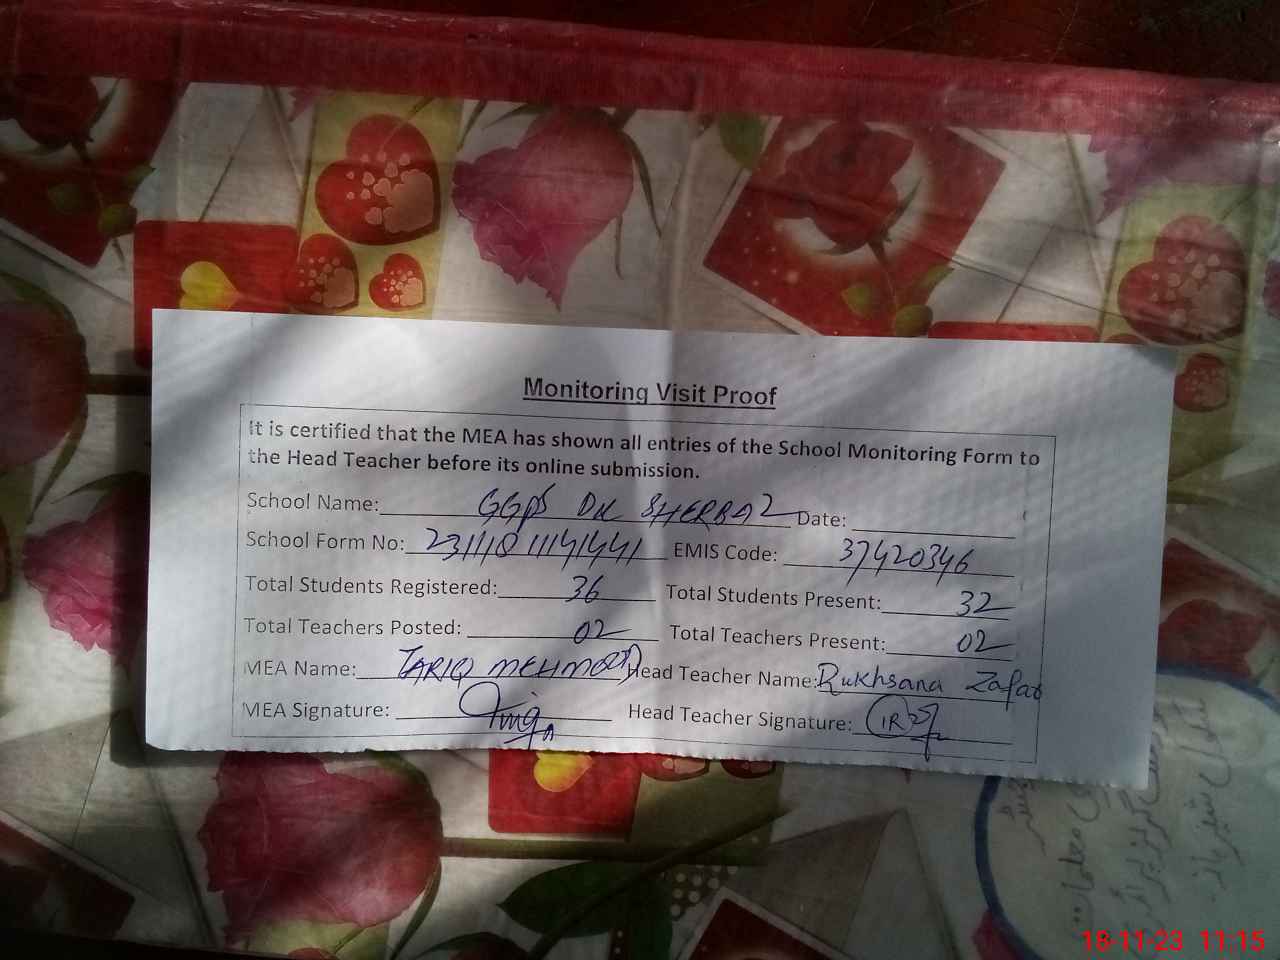 Monitoring Visit Proof
It is certified that the MEA has shown all entries of the School Monitoring Form to
the Head Teacher before its online submission.
School Name: GGPS DK SHERBAZ Date:
School Form No: EMIS Code: 37420346
Total Students Registered: 36 Total Students Present: 32
Total Teachers Posted: 02 Total Teachers Present: 02
MEA Name: TARIQ MEHMOOD Head Teacher Name: Rukhsana Zafar
MEA Signature: Head Teacher Signature:
18-11-23 11:15